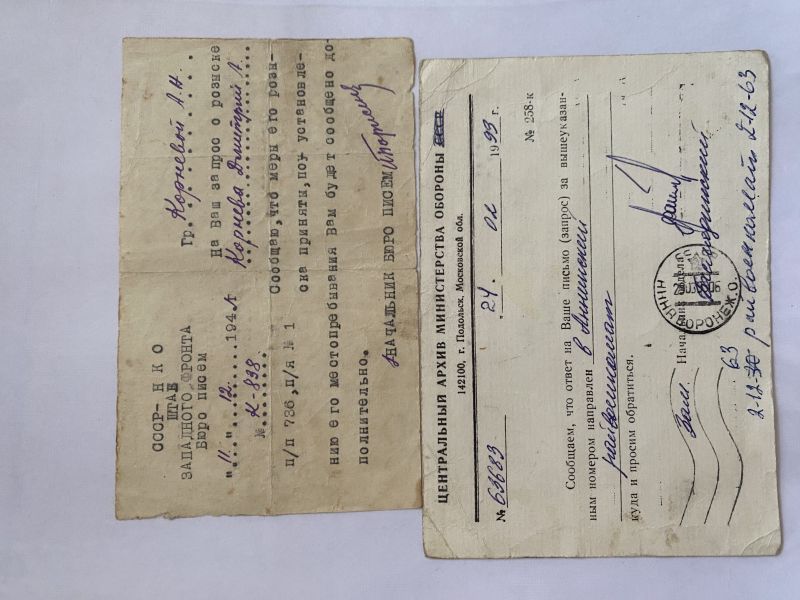 СССР - Н К О
ШТАБ
ЗАПАДНОГО ФРОНТА
Бюро писем
"11" 12 194
№ К-838
п/п 736, п/я № 1
Гр. Корневой А.Н.
На Ваш запрос о розыске
Корнева Димитрий А.
Сообщаю, что меры его розы-
ска приняты, по установле-
нию его местопребывания Вам будет сообщено до-
полнительно.
НАЧАЛЬНИК БЮРО ПИСЕМ
ЦЕНТРАЛЬНЫЙ АРХИВ МИНИСТЕРСТВА ОБОРОНЫ СССР
142100, г. Подольск, Московской обл.
№ 63683 24. 02 1993 г.
№ 258-к
Сообщаем, что ответ на Ваше письмо (запрос) за вышеуказан-
ным номером направлен в Аннинский
райвоенкомат
куда и просим обратиться.
Зам. Начальник отдела
АННИН
ВОРОНЕЖ.О.
63
2-12-30 райвоенкомат 2-12-63